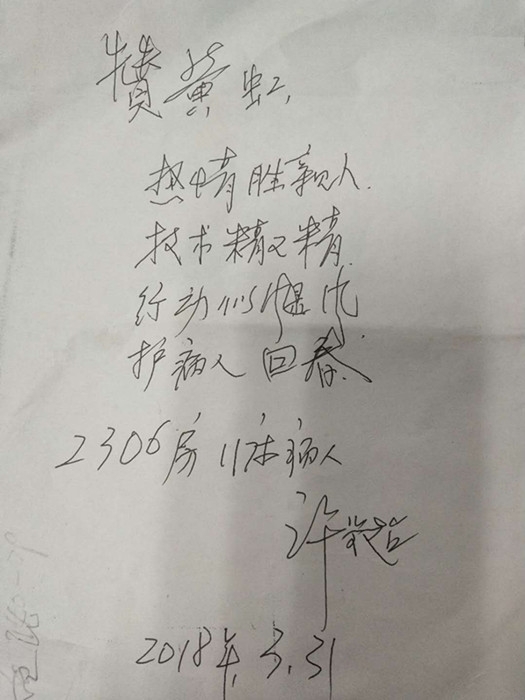 赞黄虹,
热情胜亲人.
技术精又精.
行动似温风.
护病人回春.
2306房11床病人
许
2018年.3.31